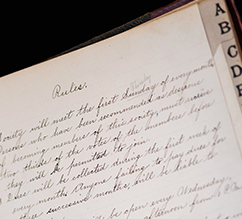 Rules.
Society will meet the first Sunday of every month
Persons who have been recommended as desirous
of becoming members of this society, must receive
two thirds of the votes of the members before
they will be permitted to join.
Dues will be collected during the first week of
every month. Anyone failing to pay dues for
successive months, will be liable to
be open every Wednesday
from
A
B
C
D
E